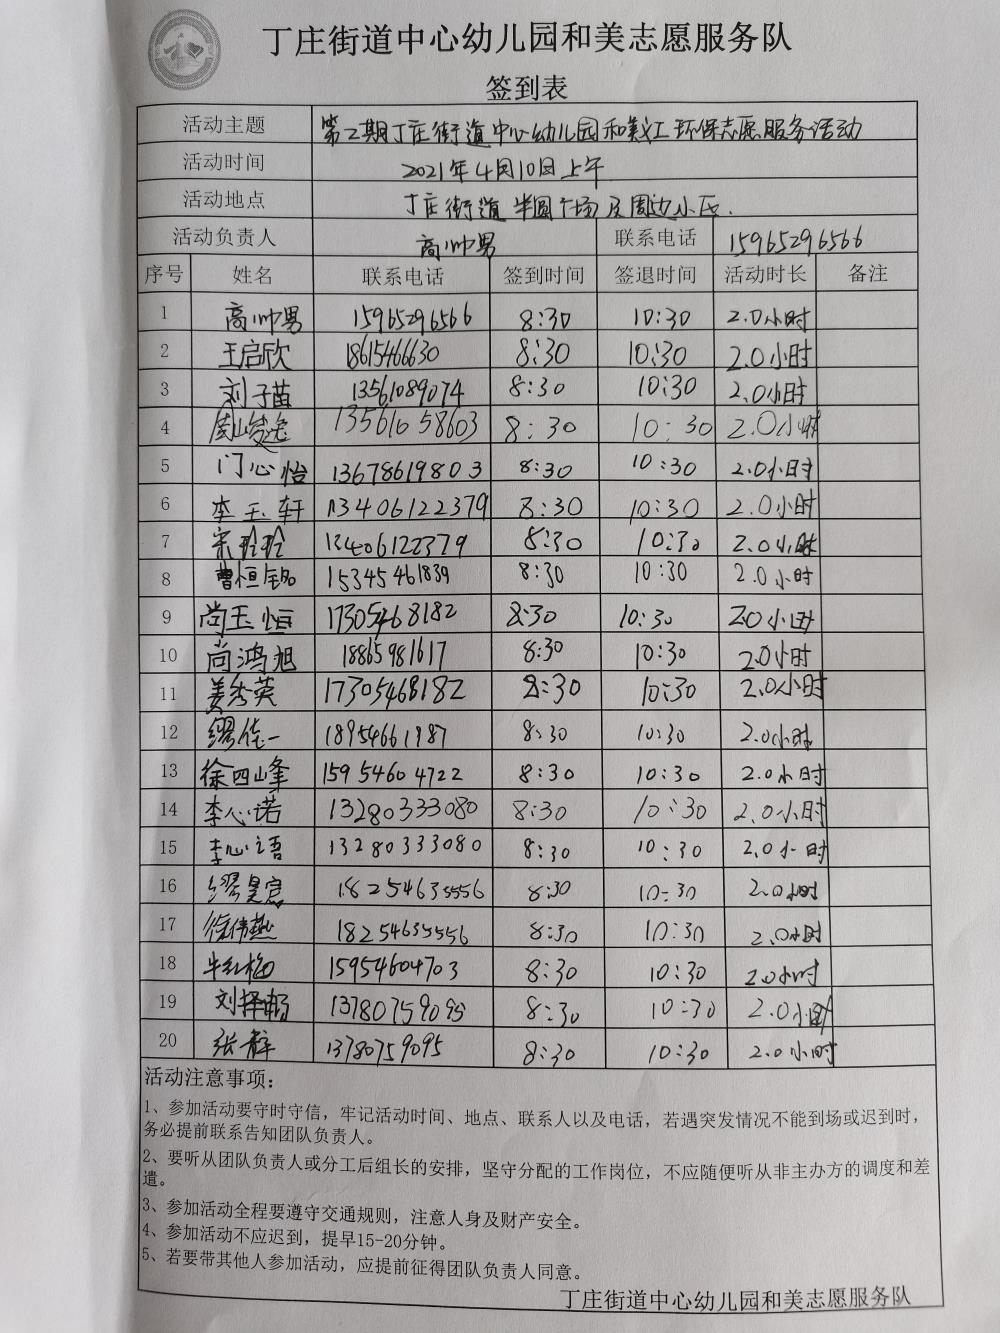 丁庄街道中心幼儿园和美志愿服务队
签到表
活动主题 第2期丁庄街道中心幼儿园和美义工环保志愿服务活动
活动时间 2021年4月10日上午
活动地点 丁庄街道半圆广场及周边小区.
活动负责人 高帅男 联系电话 15965296566
序号 姓名 联系电话 签到时间 签退时间 活动时长 备注
1 高帅男 15965296566 8:30 10:30 2.0小时
2 王启欣 18615466630 8:30 10:30 2.0小时
3 刘子苗 13561089074 8:30 10:30 2.0小时
4 周峻逸 13561058603 8:30 10:30 2.0小时
5 门心怡 13678619803 8:30 10:30 2.0小时
6 李玉轩 13406122379 8:30 10:30 2.0小时
7 宋玲玲 13406122379 8:30 10:30 2.0小时
8 曹恒铭 15345461839 8:30 10:30 2.0小时
9 尚玉恒 17305468182 8:30 10:30 2.0小时
10 尚鸿旭 18865981617 8:30 10:30 2.0小时
11 姜秀英 17305468182 8:30 10:30 2.0小时
12 缪佳一 18954661987 8:30 10:30 2.0小时
13 徐四峰 15954604722 8:30 10:30 2.0小时
14 李心诺 13280333080 8:30 10:30 2.0小时
15 李心语 13280333080 8:30 10:30 2.0小时
16 缪昊宸 18254635556 8:30 10:30 2.0小时
17 徐伟燕 18254635556 8:30 10:30 2.0小时
18 牛红梅 15954604703 8:30 10:30 2.0小时
19 刘择畅 13780759095 8:30 10:30 2.0小时
20 张静 13780759095 8:30 10:30 2.0小时
活动注意事项：
1、参加活动要守时守信，牢记活动时间、地点、联系人以及电话，若遇突发情况不能到场或迟到时，
务必提前联系告知团队负责人。
2、要听从团队负责人或分工后组长的安排，坚守分配的工作岗位，不应随便听从非主办方的调度和差
遣。
3、参加活动全程要遵守交通规则，注意人身及财产安全。
4、参加活动不应迟到，提早15-20分钟。
5、若要带其他人参加活动，应提前征得团队负责人同意。
丁庄街道中心幼儿园和美志愿服务队